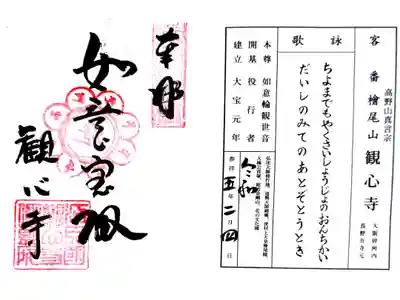 奉拝
如意宝珠
観心寺
高野山真言宗
客番 檜尾山 観心寺
大阪府河内
長野市寺元
詠歌
ちよまでもやくさいしょうじょのおんちかい
だいしのみてのあとぞとうとき
本尊 如意輪観世音
開基 役行者
建立 大宝元年
参拝
令和
五 二 月 四 日